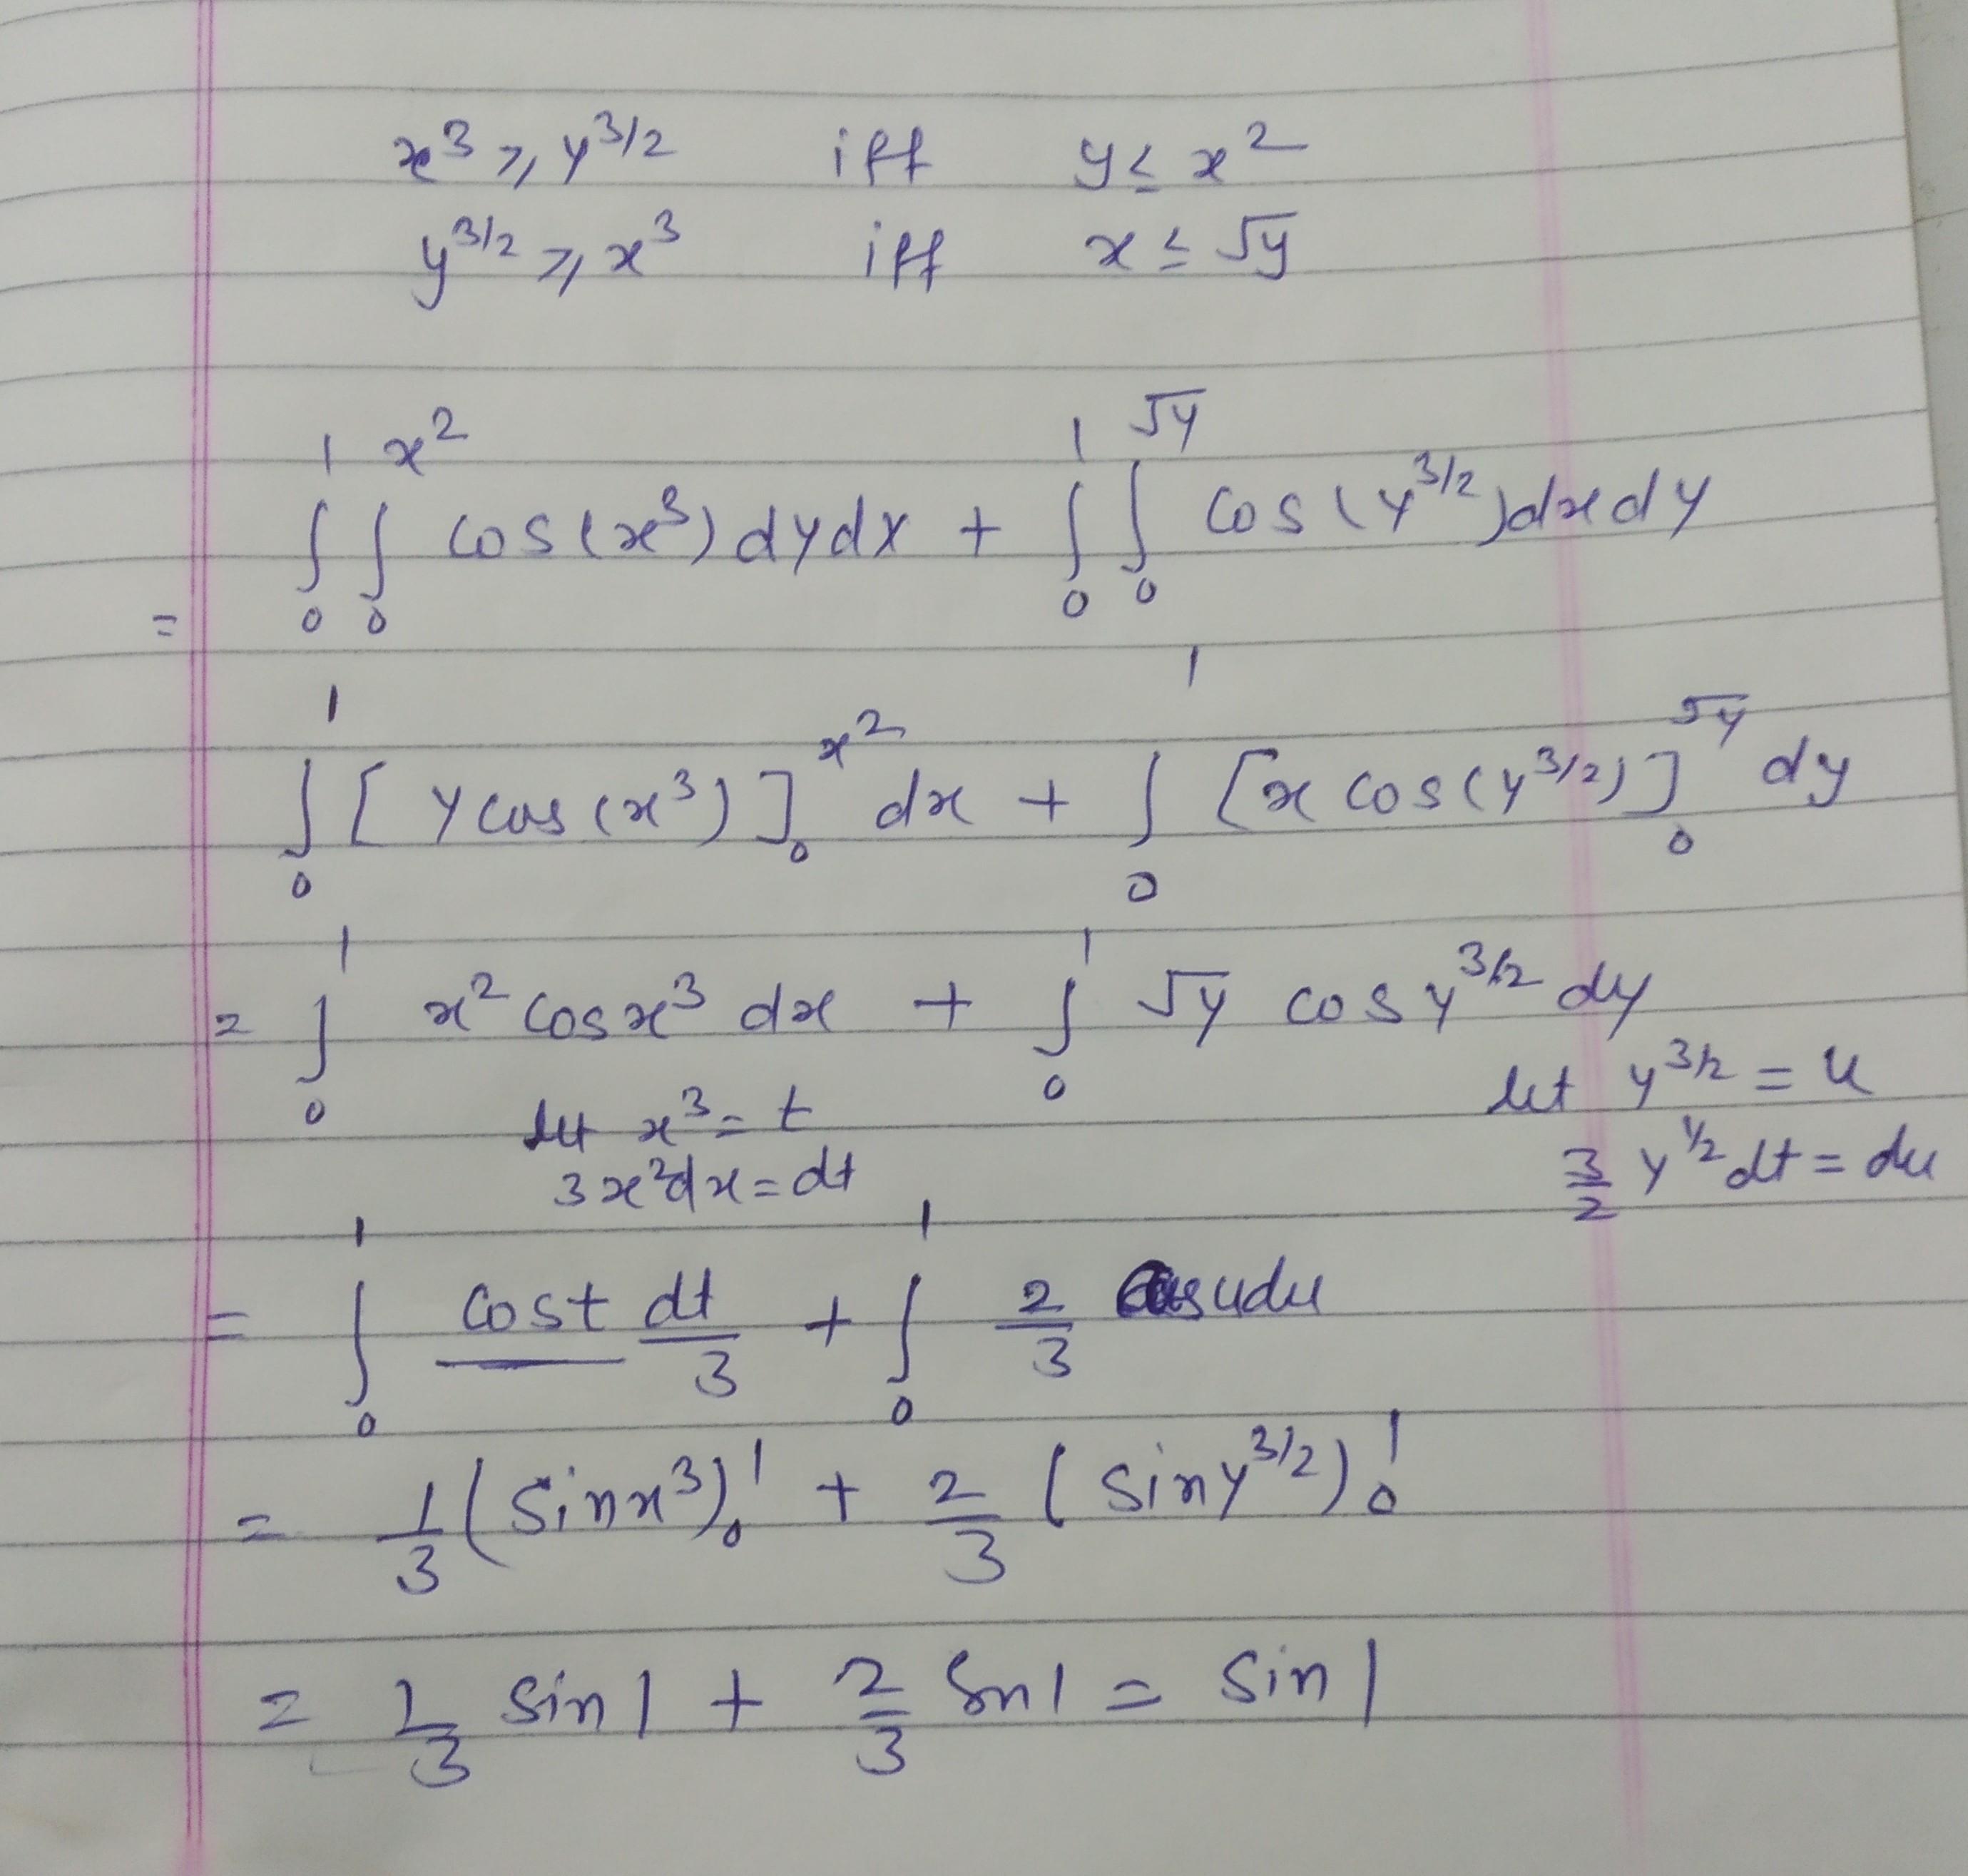 x³ ≥ y^3/2 iff y ≤ x²
y^3/2 ≥ x³ iff x ≤ √y
= ∫₀¹ ∫₀^x² cos(x³) dy dx + ∫₀¹ ∫₀^√y cos(y^3/2) dx dy
∫₀¹ [y cos(x³)]₀^x² dx + ∫₀¹ [x cos(y^3/2)]₀^√y dy
= ∫₀¹ x² cos x³ dx + ∫₀¹ √y cos y^3/2 dy
let x³ = t let y^3/2 = u
3x²dx = dt 3/2 y^1/2 dt = du
= ∫₀¹ cost dt/3 + ∫₀¹ 2/3 cosudu
= 1/3 (sinx³)₀¹ + 2/3 (siny^3/2)₀¹
= 1/3 sin1 + 2/3 sin1 = sin1